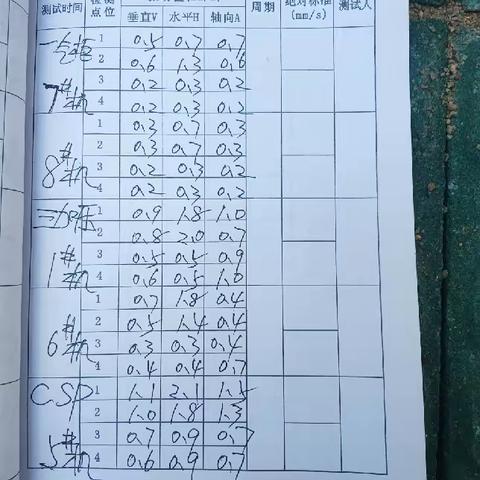 测试时间 检测点位 垂直V 水平H 轴向A 周期 绝对标准(mm/s) 测试人
1 0.5 0.7 0.7
2 0.6 1.3 0.6
7#机 3 0.2 0.3 0.2
4 0.2 0.3 0.2
1 0.3 0.7 0.3
2 0.3 0.7 0.3
8#机 3 0.2 0.3 0.2
4 0.2 0.3 0.2
三加压 1 0.9 1.8 1.0
2 0.8 2.0 0.7
1#机 3 0.5 0.5 0.9
4 0.6 0.5 1.0
1 0.7 1.8 0.4
2 0.5 1.4 0.4
6#机 3 0.3 0.3 0.4
4 0.4 0.4 0.7
C.S.P 1 1.1 2.1 1.5
2 1.0 1.8 1.3
5#机 3 0.7 0.9 0.7
4 0.6 0.9 0.7